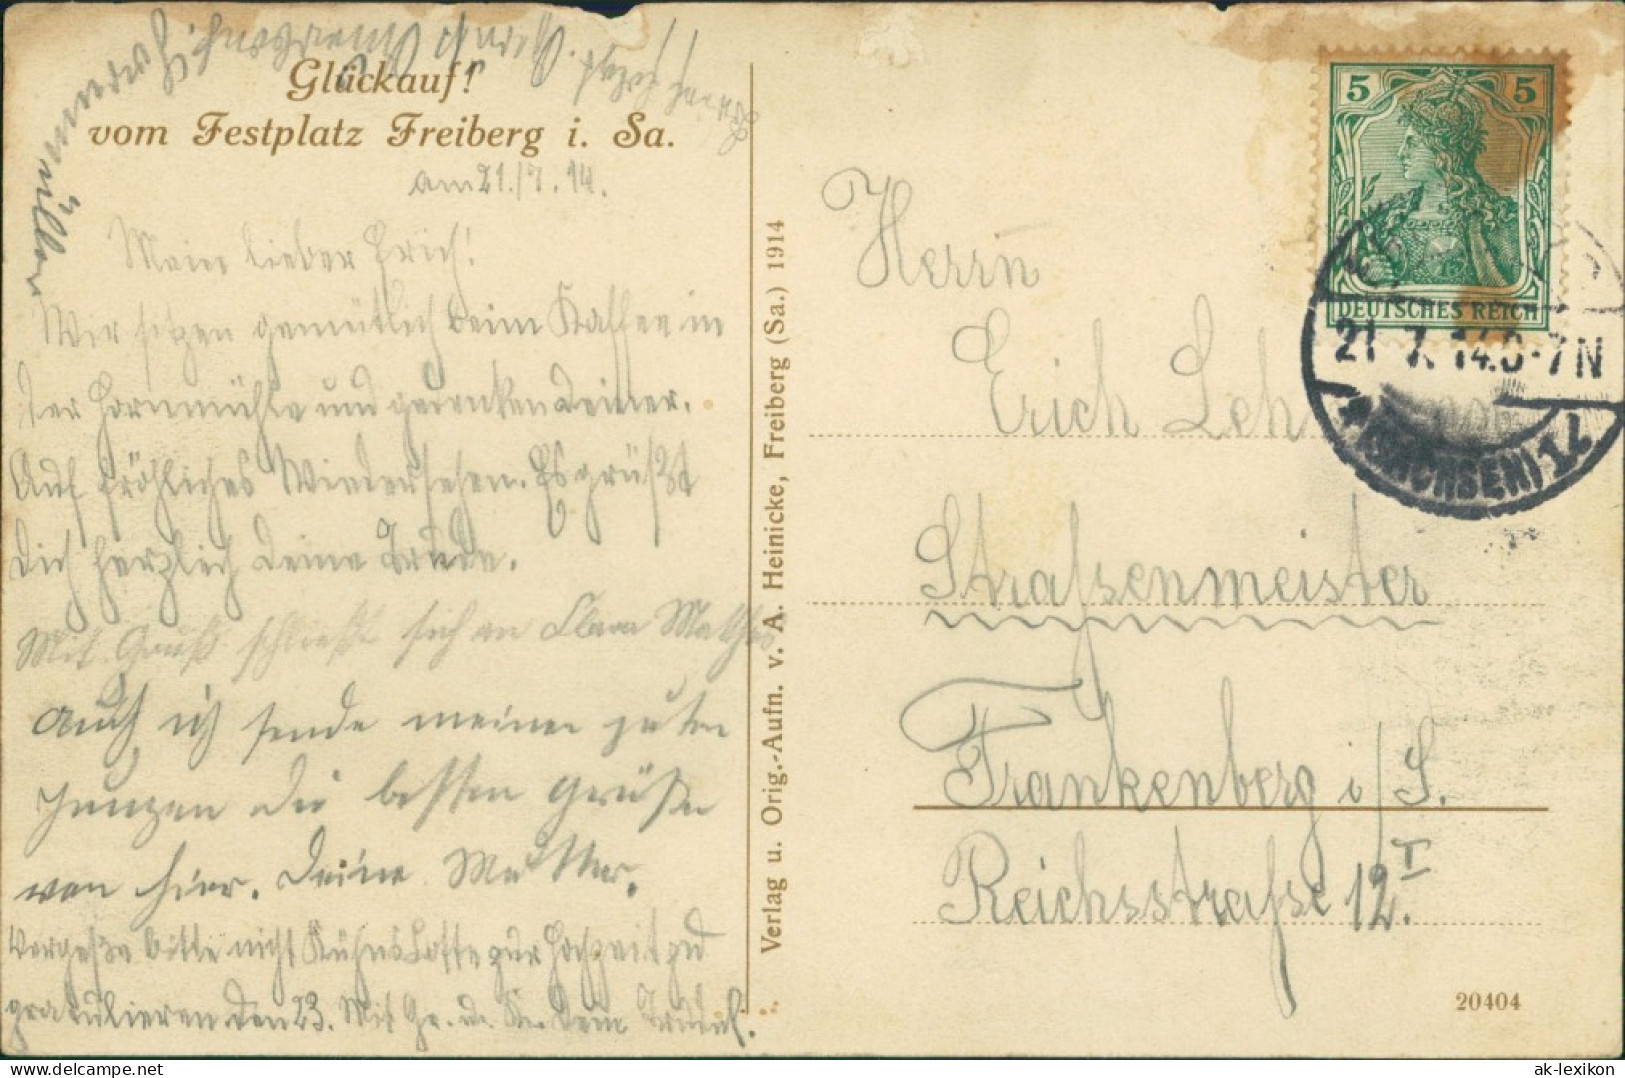 Glückauf!
vom Festplatz Freiberg i. Sa.
am 21./7. 14.
Mein lieber Erich!
Wir sitzen gemütlich beim Kaffee in
der Hornmühle und gedenken Deiner.
Auf fröhliches Wiedersehen. Es grüßt
Dich herzlich Deine Trude.
Mit Gruß schließt sich an Clara
Auch ich sende meinen guten
Jungen die besten Grüße
von hier. Deine Mutter.
Vergeße bitte nicht Kühns Lotte zur Hochzeit zu
gratulieren den 23. Mit Gr. u. K. Dein
Verlag u. Orig.-Aufn. v. A. Heinicke, Freiberg (Sa.) 1914
5 5
DEUTSCHES REICH
21 7. 14. 6-7 N
(SACHSEN) 1
Herrn
Erich Leh
Straßenmeister
Frankenberg i/S.
Reichsstraße 12 I.
20404
ak-lexikon